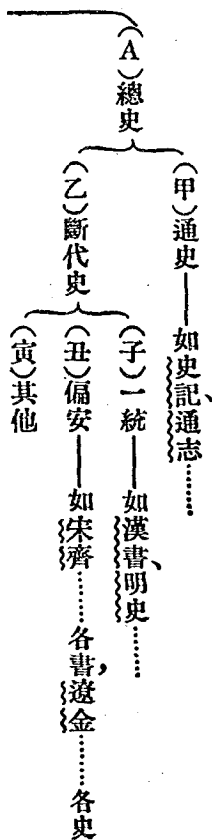 (A)總史
(甲)通史——如史記、通志………
(乙)斷代史
(子)一統——如漢書、明史………
(丑)偏安——如宋齊………各書,遼金………各史
(寅)其他